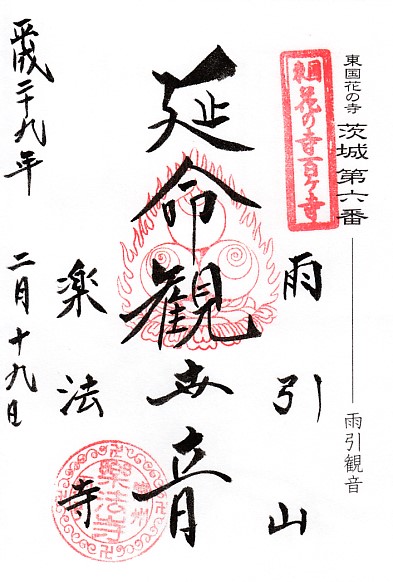 東国花の寺 茨城 第六番 雨引観音
東国花の寺百ヶ寺
雨引山
延命観世音
楽法寺
楽法寺
平成二十九年 二月十九日